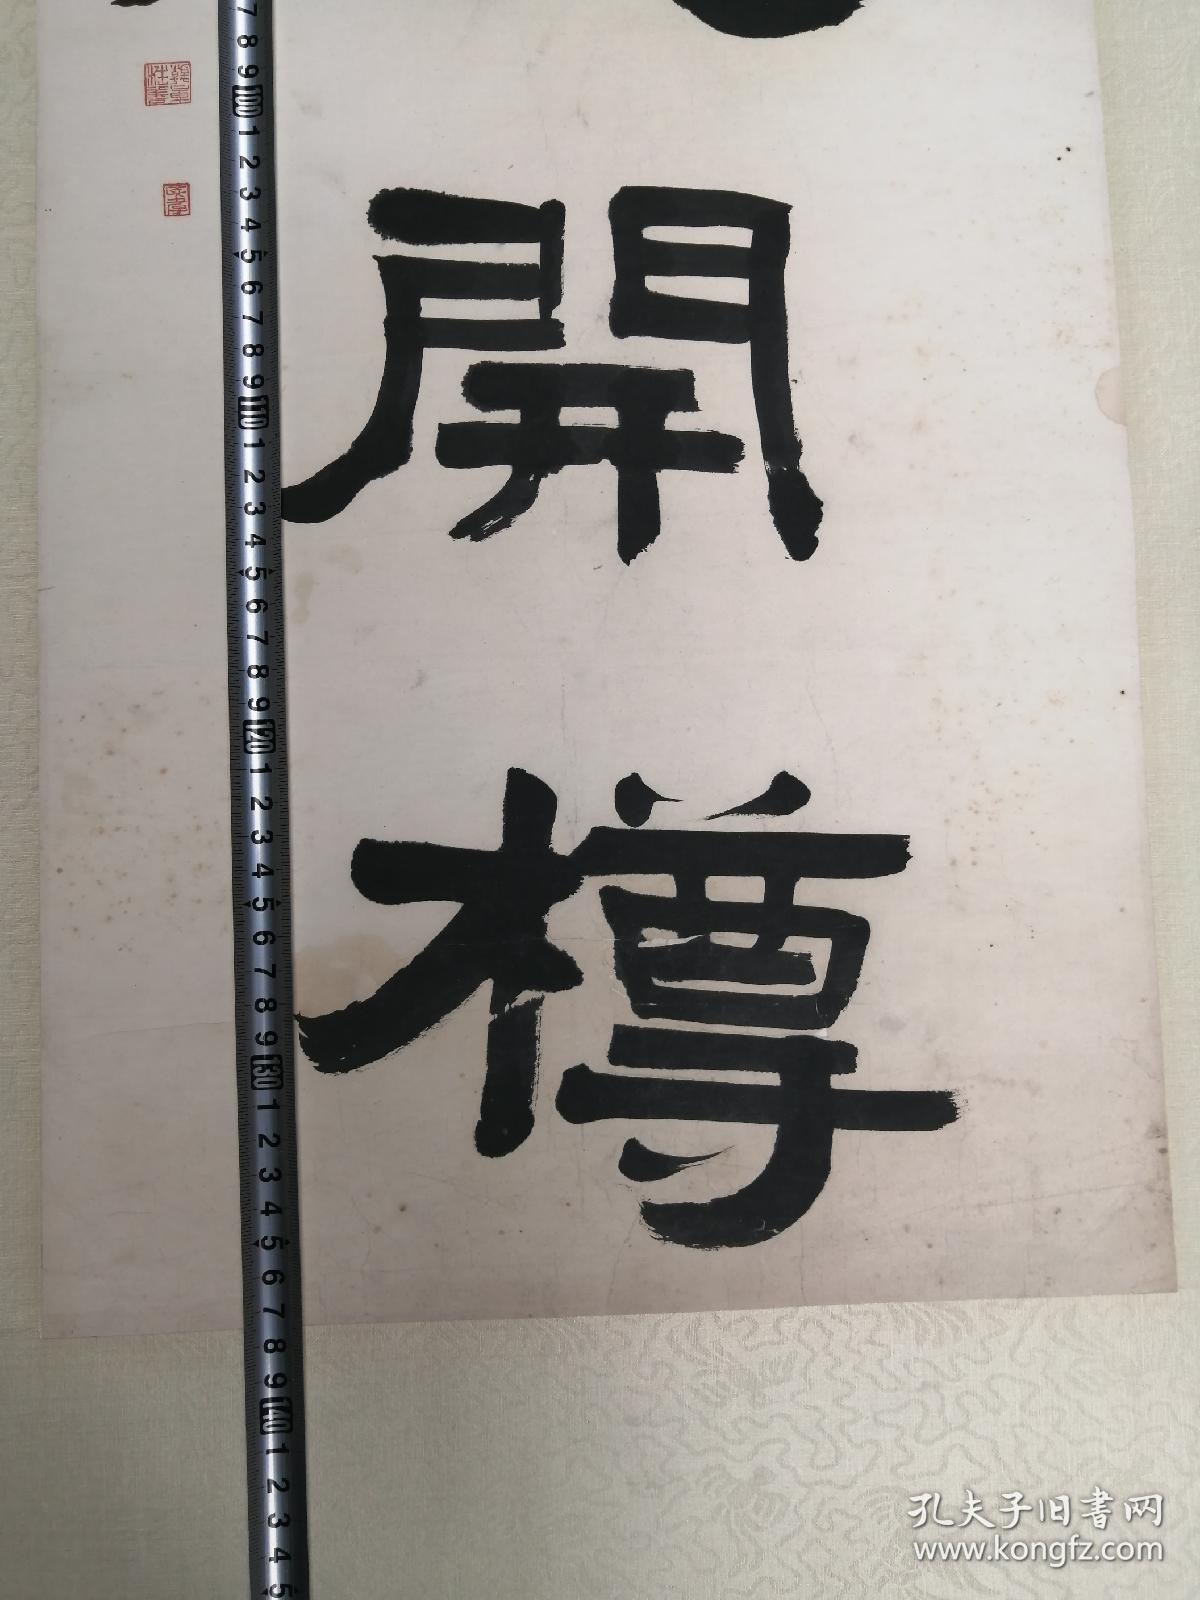 開
樽
7
8
9
100
1
2
3
4
5
6
7
8
9
110
1
2
3
4
5
6
7
8
9
120
1
2
3
4
5
6
7
8
9
130
1
2
3
4
5
6
7
8
9
140
1
2
3
4
5
孔夫子旧書网
www.kongfz.com